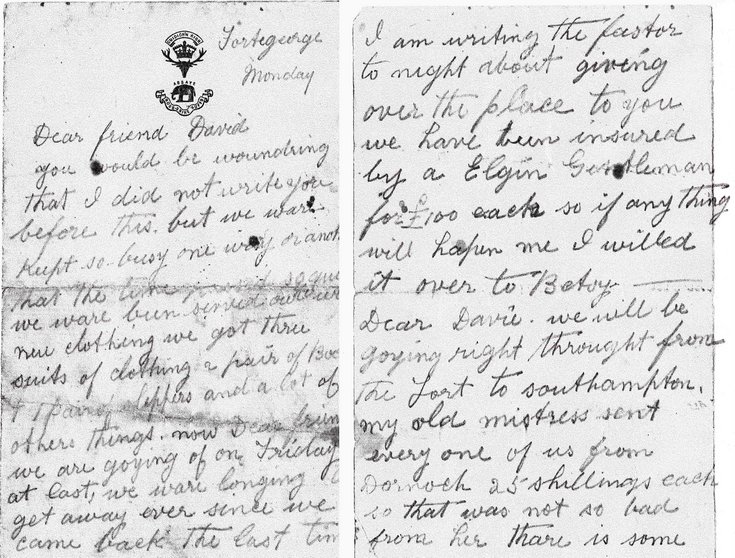 Fortegeorge
Monday
ASSAYE
Dear friend David
you would be woundring
that I did not write you
before this. but we ware
kept so busy one way or anoth
that the time so qui
we ware been served out
new clothing we got thre
suits of clothing 2 pair of Boo
& 1 pair slippers and a lot of
others things. now Dear
we are goying of on Friday
at last, we ware longing
get away ever since we
came back the last tim
I am writing the factor
to night about giving
over the place to you
we have been insured
by a Elgin Gentleman
for £100 each so if any thing
will hapen me I willed
it over to Betsy
Dear Davie. we will be
goying right throught from
the Fort to southampton.
my old mistress sent
every one of us from
Dornoch 25 shillings each
so that was not so bad
from her thare is some